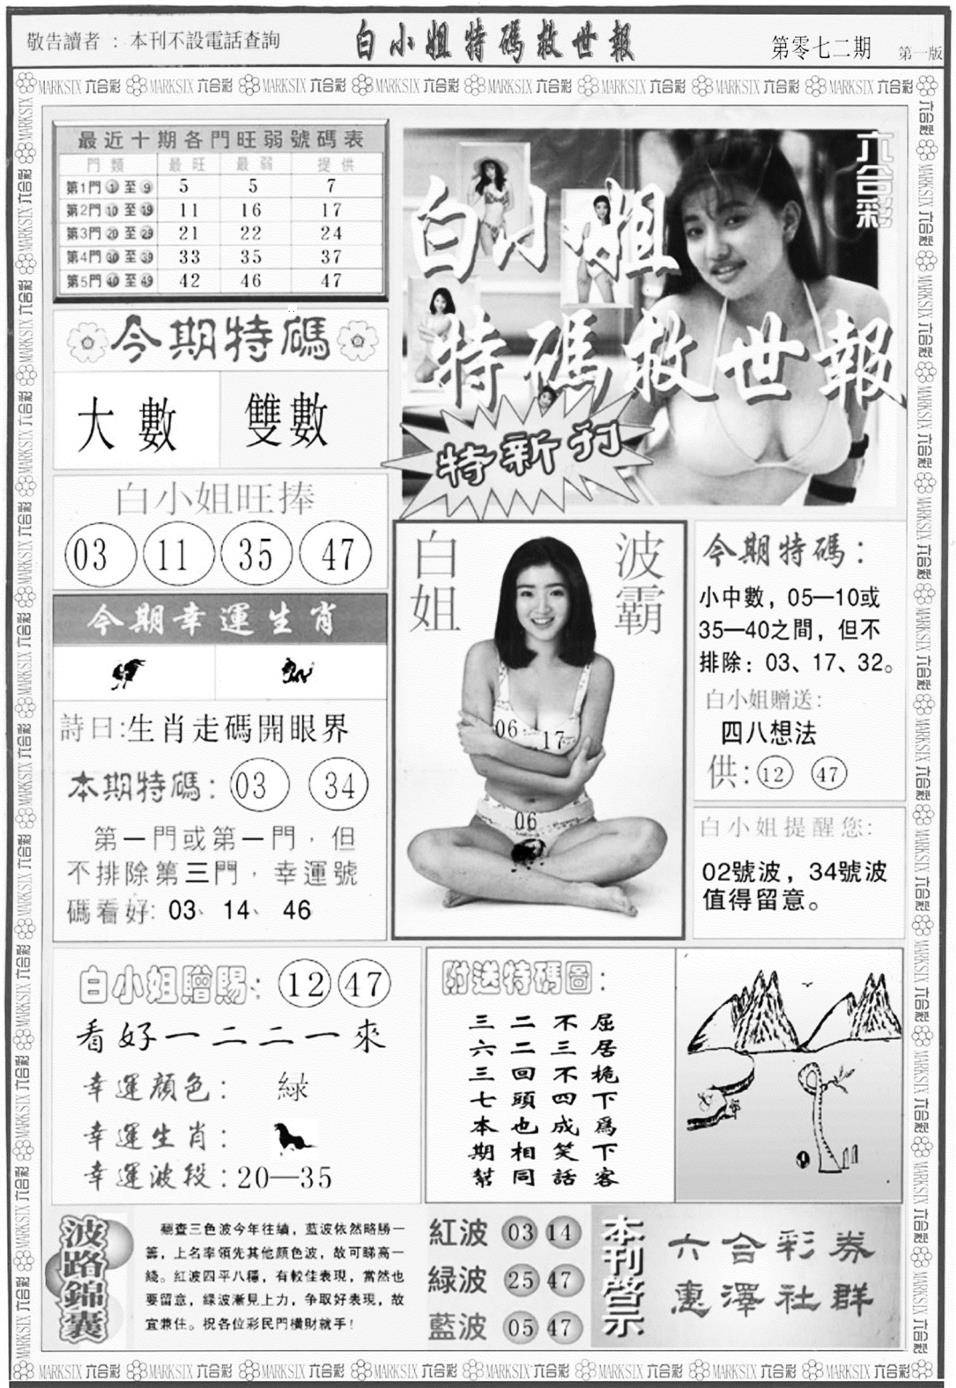 敬告讀者：本刊不設電話查詢
白小姐特碼救世報
第零七二期
第一版
MARKSIX 六合彩
最近十期各門旺弱號碼表
門類 最旺 最弱 提供
第1門①至⑨ 5 5 7
第2門⑩至⑲ 11 16 17
第3門⑳至㉙ 21 22 24
第4門㉚至㊴ 33 35 37
第5門㊵至㊾ 42 46 47
六合彩
白小姐
特碼救世報
特新刊
今期特碼
大數 雙數
白小姐旺捧
03 11 35 47
今期幸運生肖
詩曰:生肖走碼開眼界
本期特碼：03 34
第一門或第一門，但
不排除第三門，幸運號
碼看好:03、14、46
白姐
波霸
06 17
06
今期特碼：
小中數，05—10或
35—40之間，但不
排除：03、17、32。
白小姐贈送:
四八想法
供:12 47
白小姐提醒您:
02號波，34號波
值得留意。
白小姐贈賜：12 47
看好一二二一來
幸運顏色：綠
幸運生肖：
幸運波段：20—35
附送特碼圖：
屈居桅下為下客
不三不四成笑話
二二回頭也相同
三六三七本期幫
波路錦囊
翻查三色波今年往績，藍波依然略勝一
籌，上名率領先其他顏色波，故可睇高一
綫。紅波四平八穩，有較佳表現，當然也
要留意，綠波漸見上力，爭取好表現，故
宜兼住。祝各位彩民門橫財就手！
紅波 03 14
綠波 25 47
藍波 05 47
本刊營示
六合彩券
惠澤社群